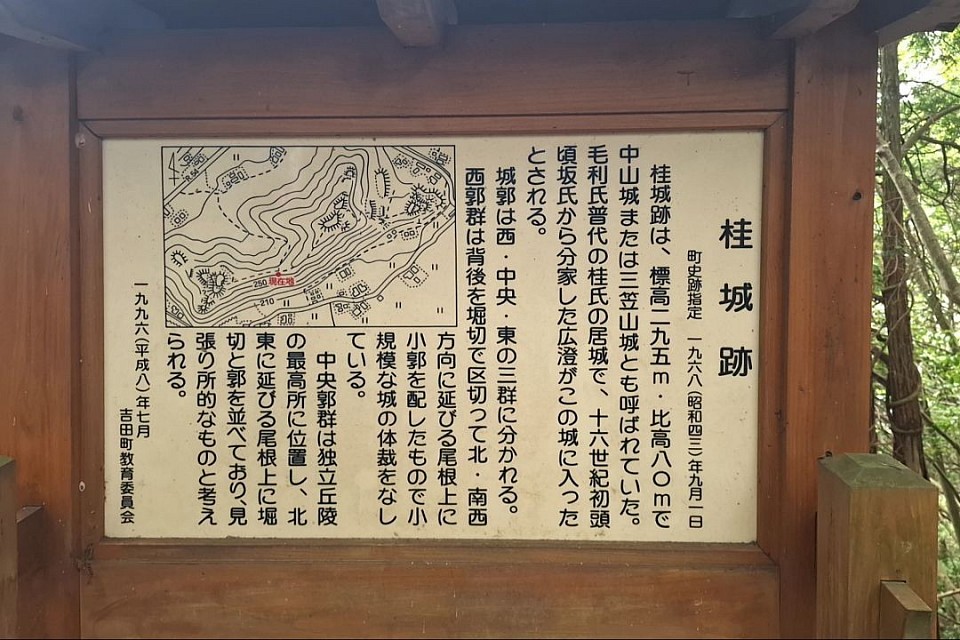 桂城跡
町史跡指定 一九六八(昭和四三)年九月一日
桂城跡は、標高二九五m・比高八〇mで
中山城または三笠山城とも呼ばれていた。
毛利氏普代の桂氏の居城で、十六世紀初頭
頃坂氏から分家した広澄がこの城に入った
とされる。
城郭は西・中央・東の三群に分かれる。
西郭群は背後を堀切で区切って北・南西
方向に延びる尾根上に
小郭を配したもので小
規模な城の体裁をなし
ている。
中央郭群は独立丘陵
の最高所に位置し、北
東に延びる尾根上に堀
切と郭を並べており、見
張り所的なものと考え
られる。
一九九六(平成八)年七月
吉田町教育委員会
250
現在地
210